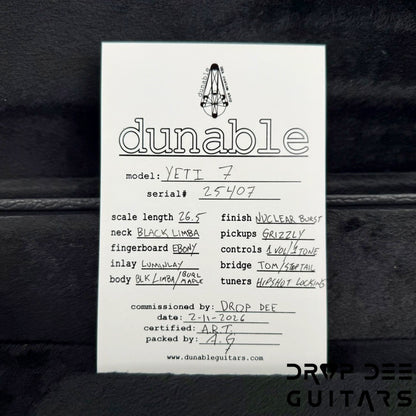 dunable
model: YETI 7
serial# 25407
scale length 26.5
neck BLACK LIMBA
fingerboard EBONY
inlay LUMINLAY
body BLK LIMBA/BURL MAPLE
finish NUCLEAR BURST
pickups GRIZZLY
controls 1 VOL/1 TONE
bridge TOM/STOPTAIL
tuners HIPSHOT LOCKING
commissioned by: DROP DEE
date: 2-11-2026
certified: A.R.T.
packed by:
www.dunableguitars.com
DROP DEE
GUITARS